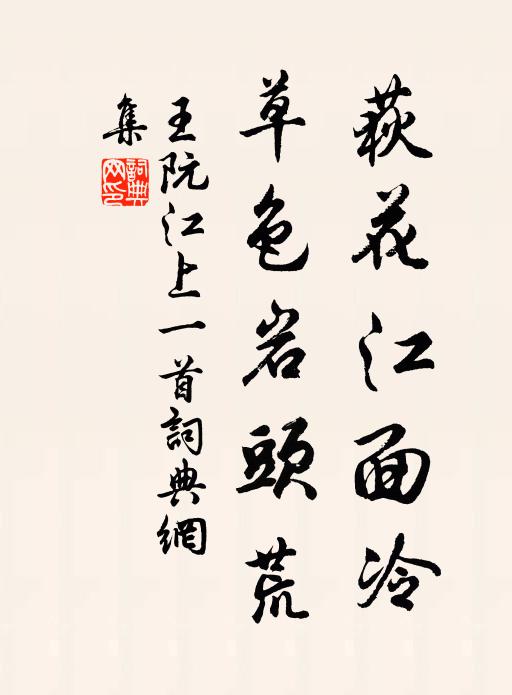 荻花江面冷
草色岩頭荒
王阮江上一首詞典網
集
詞典
网印